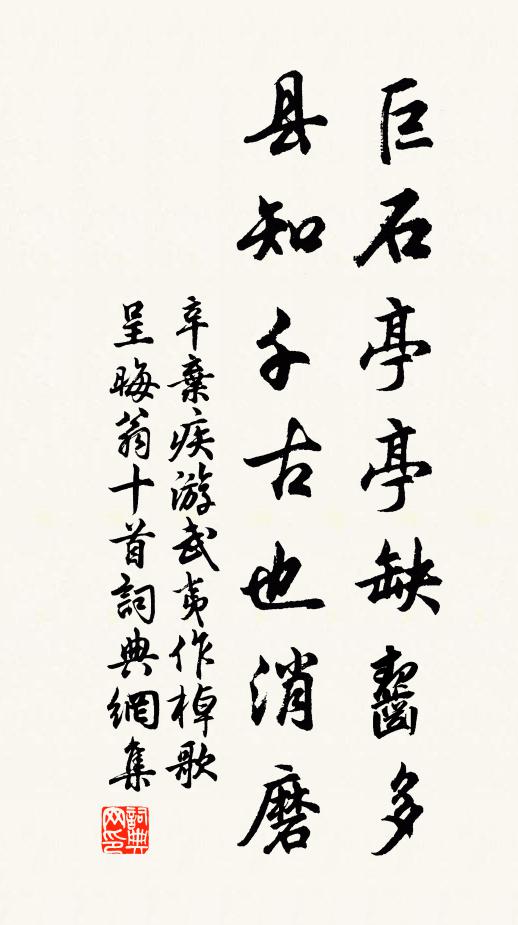 巨石亭亭缺齧多
县知千古也消磨
辛棄疾游武夷作棹歌
呈晦翁十首詞典網集
詞典
网印